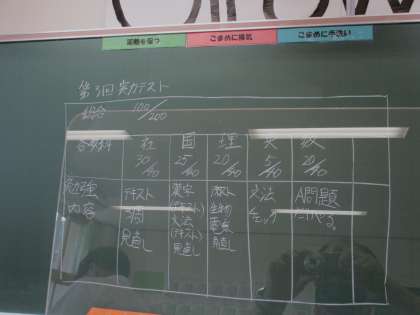 距離を保つ
こまめに換気
こまめに手洗い
第3回 実力テスト
総合 100/200
各教科 社 国 理 英 数
30/40 25/40 20/40 5/40 20/40
勉強内容
テキスト
見直し
漢字
(テキスト)
文法
(テキスト)
見直し
テキスト
生物
電気
見直し
文法
チェック
A問題
だけやる。